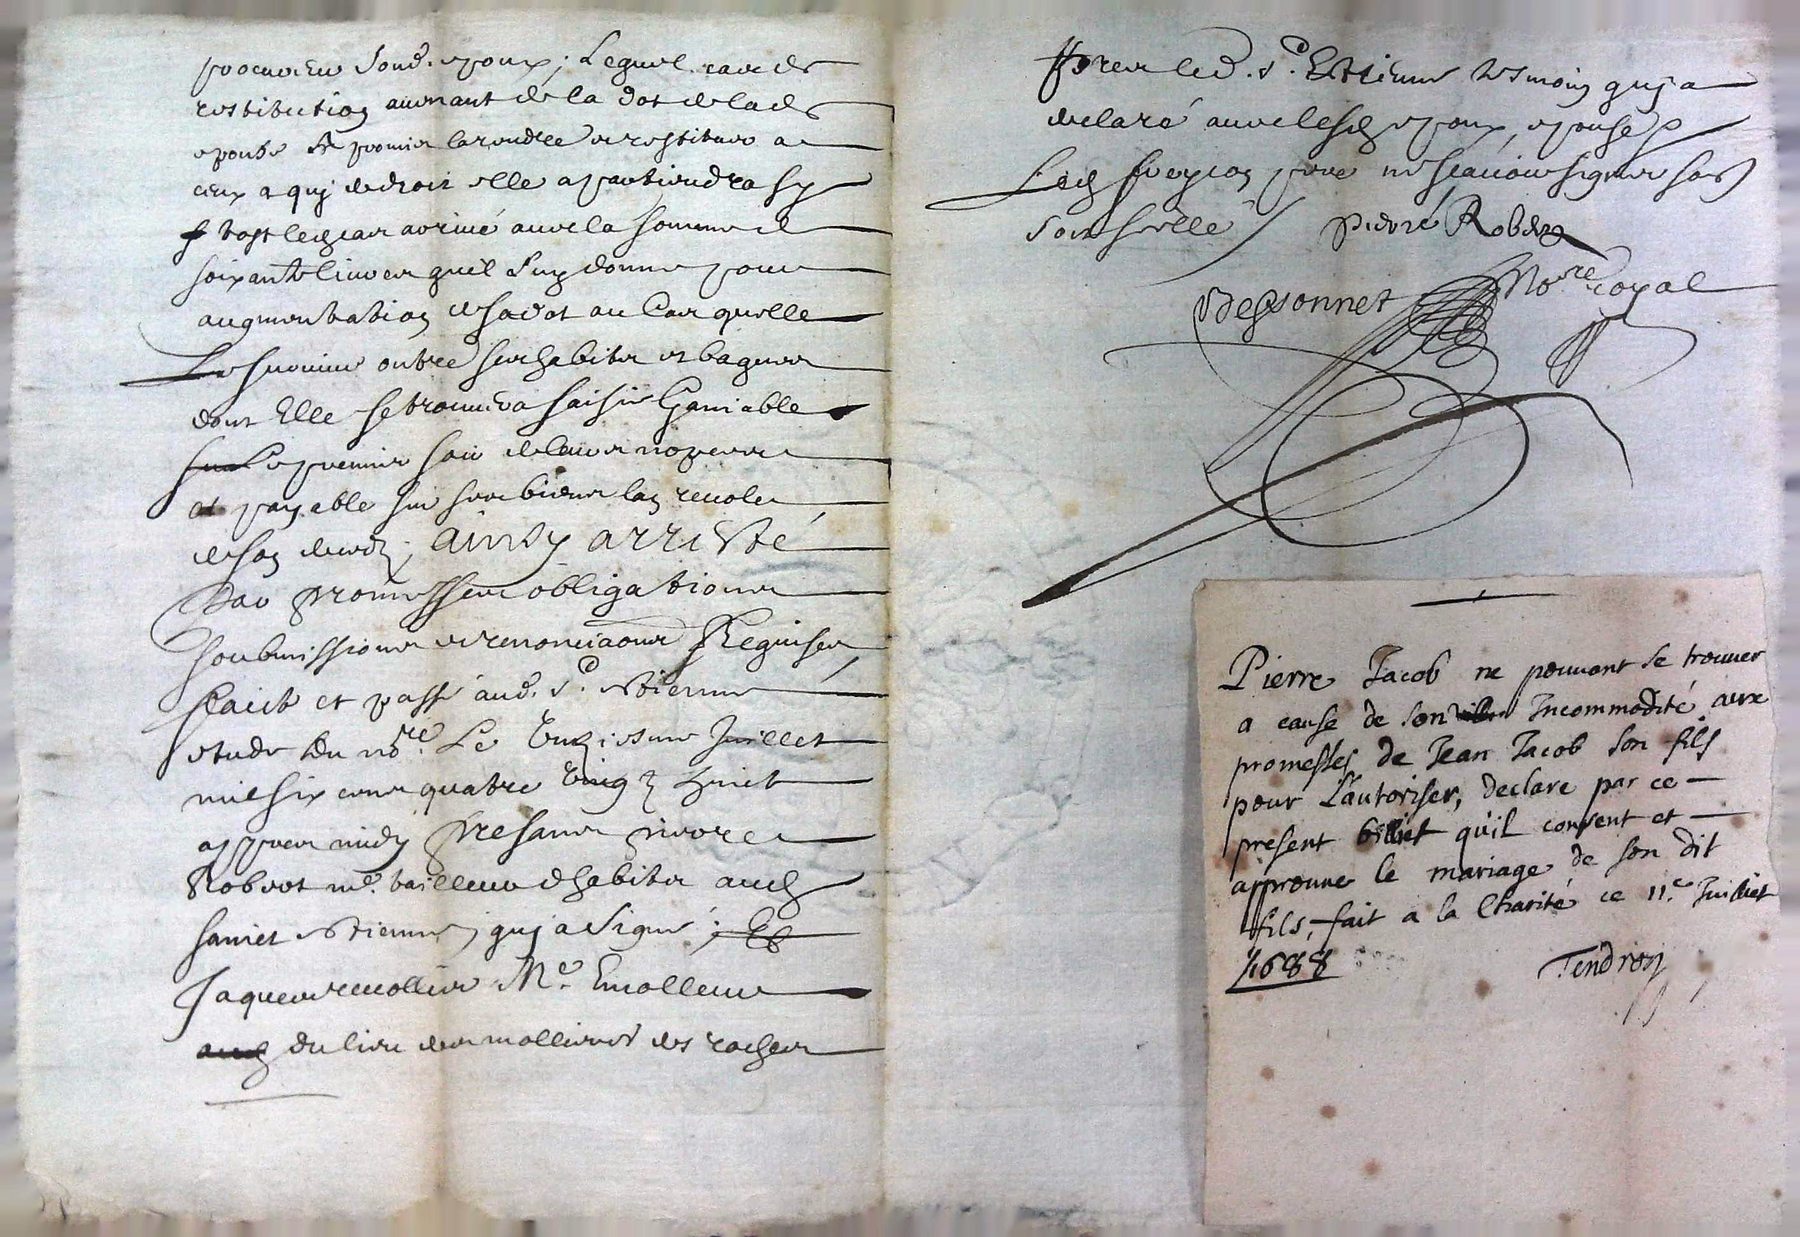 procureur dud. espoux, Lequel cas de
restitution avenant de la dot de lad.
epouse a promis la rendre et restituer a
ceux a quj de droit elle apartiendra sy
tost led. cas arrivé avec la somme de
soixante livres quil luy donne pour
augmentation de sa dot au cas quelle
Le survive outre ses habits et bagues
dont Elle se trouvera saisie
et payable sur ses biens
de son ; ainsy arresté
Par promesses obligations
soubmissions et renonciaons Requises
faict et passé aud. St. estienne
estude du nore. Le Unziesme Juillet
mil six cens quatre Vingt huict
appres midy Presans pierre
Robert me. tailleur dhabits aud.
sainct estienne quj a signé ; Et
Jaques Me. Emolleur
du lieu des mollieres des roches
pres led. St. Estienne tesmoin quj a
declaré avec lesd. espoux, epouse
Led. pere ne scavoir signer sur
Pierre Robert
Dessonnet Nore. royal
Pierre Jacob ne pouvant se trouver
a cause de son Incommodité aux
promesses de Jean Jacob son fils
pour L'autoriser, declare par ce
present billiet qu'il consent et
approuve le mariage de son dit
fils, fait a la Charité ce 11.e Juilliet
1688
Tendron